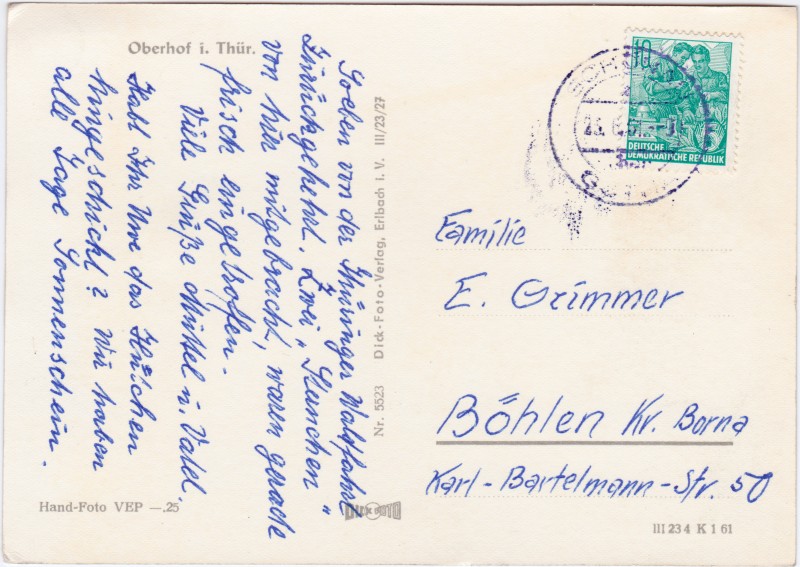 Oberhof i. Thür.
Soeben von der Thüringer Waldfahrt
zurückgekehrt. Zwei „Hunchen"
von hier mitgebracht, waren gerade
frisch eingetroffen.
Viele Grüße Muttel u. Vatel.
Habt Ihr Uwe das Häschen
hingeschickt? Wir haben
alle Tage Sonnenschein.
Hand-Foto VEP —.25
Nr. 5523 Dick-Foto-Verlag, Erlbach i. V. III/23/27
DICK FOTO
10
DEUTSCHE
DEMOKRATISCHE REPUBLIK
Familie
E. Grimmer
Böhlen Kr. Borna
Karl-Bartelmann-Str. 50
III 23 4 K 1 61